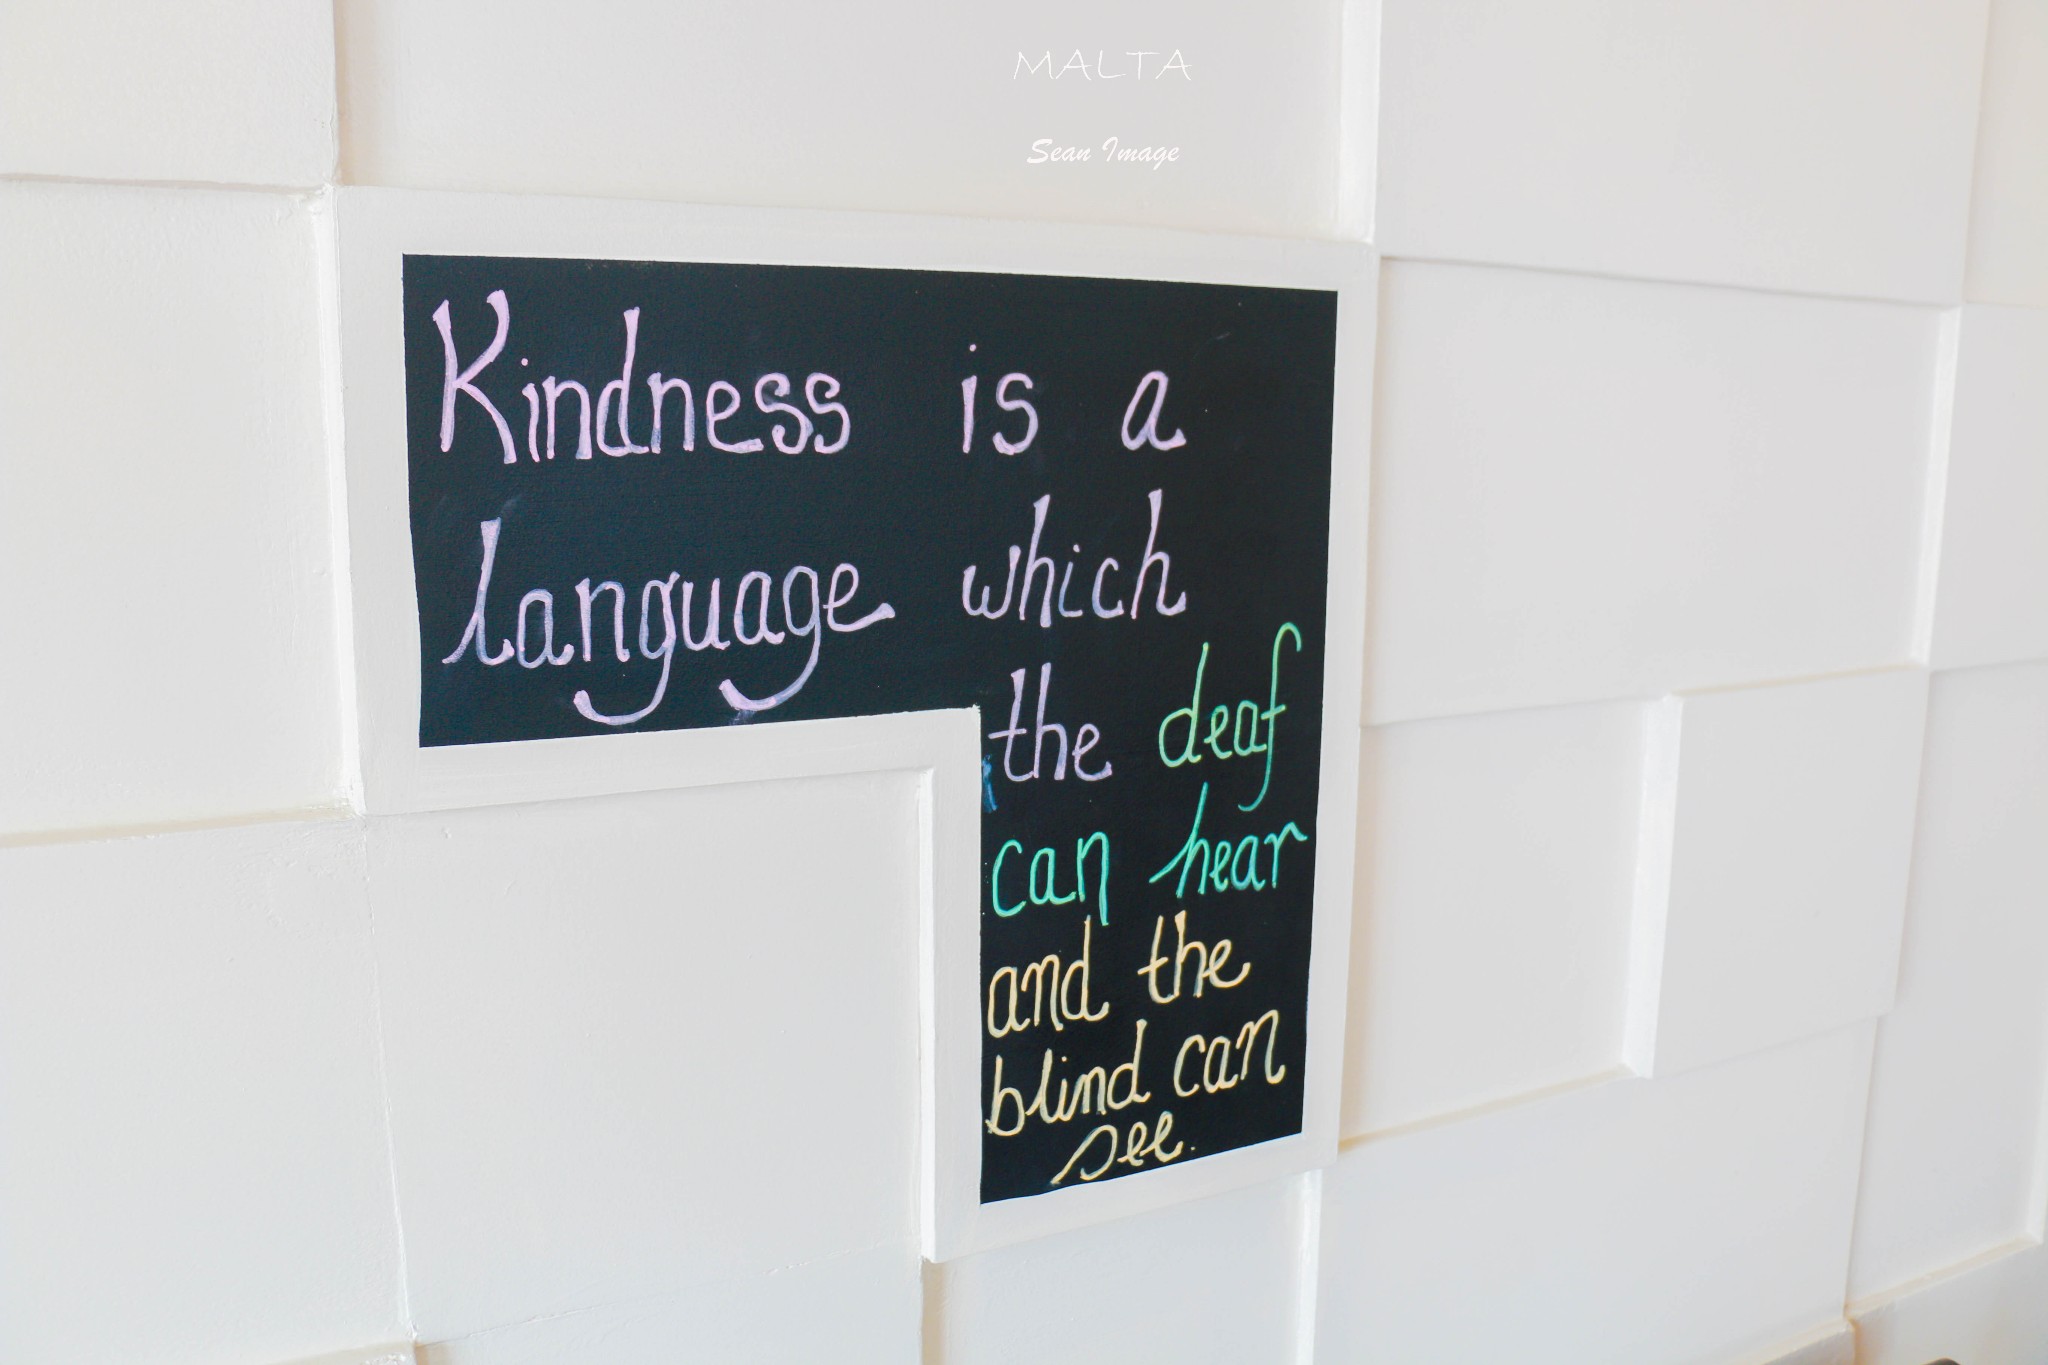 MALTA
Sean Image
Kindness is a
language which
the deaf
can hear
and the
blind can
see.